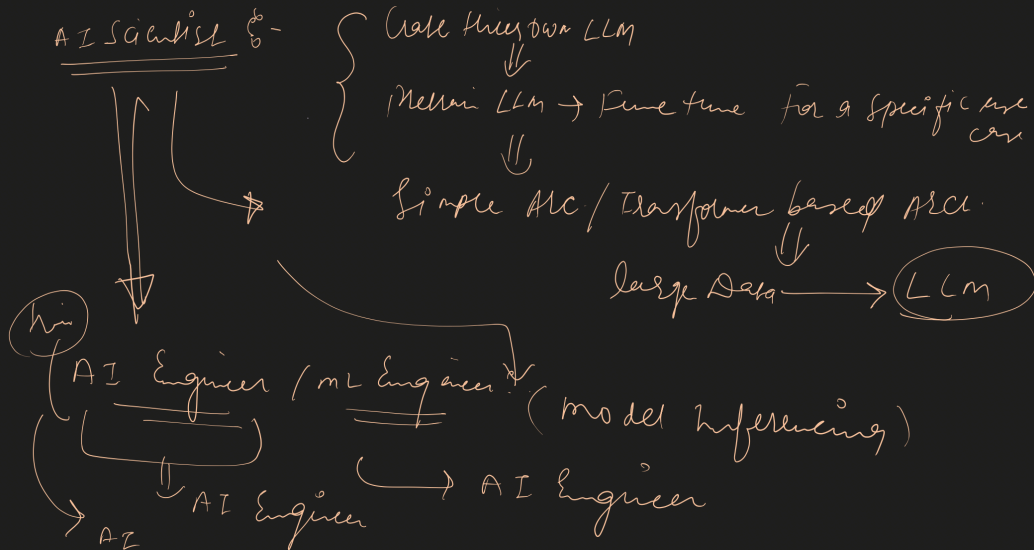 AI Scientist :-
Create their own LLM
LLM → Fine tune For a specific use case
Simple Arc / Transformer based Arch.
large Data → LLM
AI Engineer / ML Engineer
(model Inferencing)
AI Engineer
AI Engineer
AI